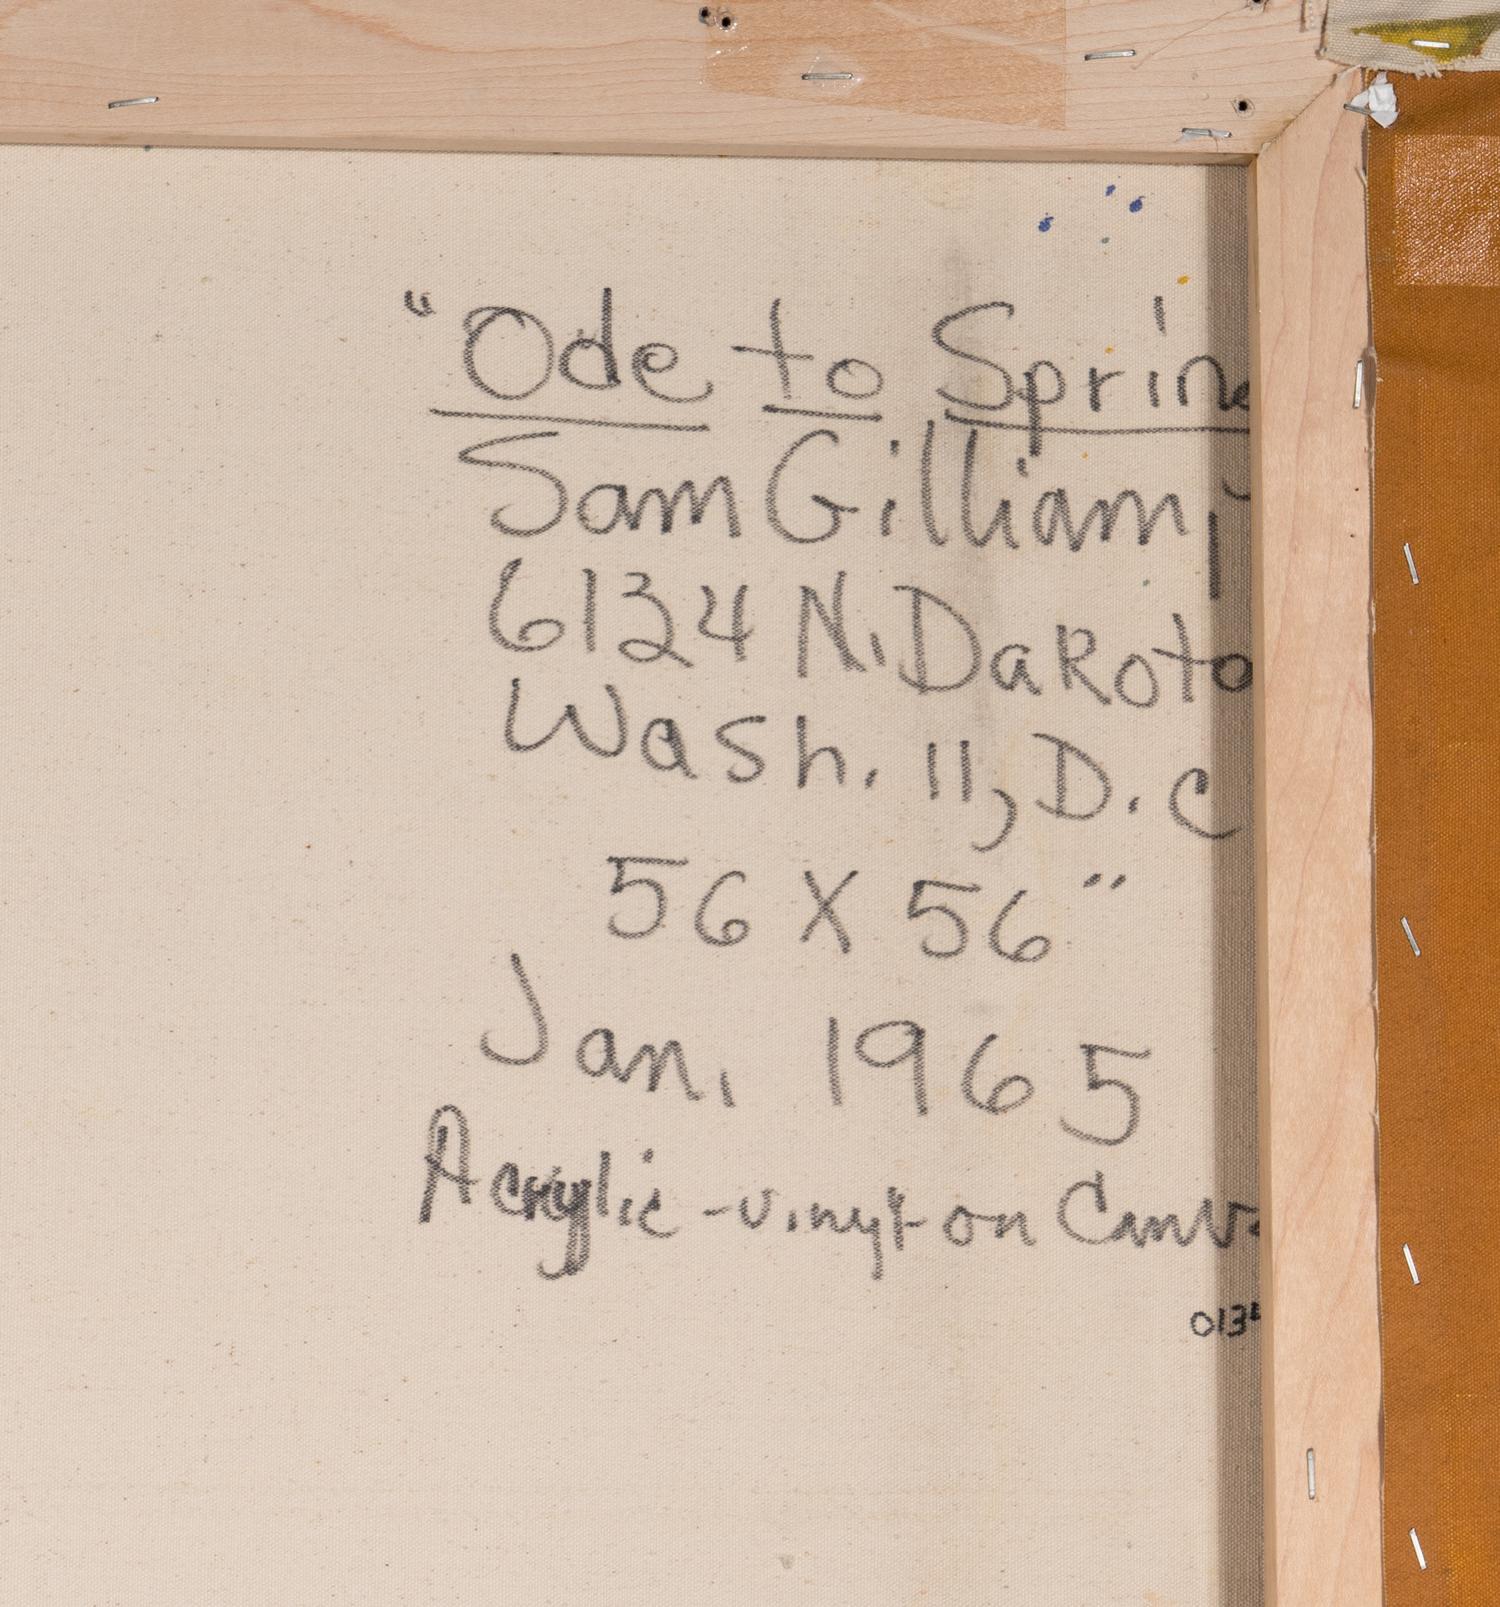 "Ode to Spring
Sam Gilliam, J
6134 N. Dakota
Wash. 11, D. C
56 X 56"
Jan. 1965
Acrylic - vinyl on Canva
0134